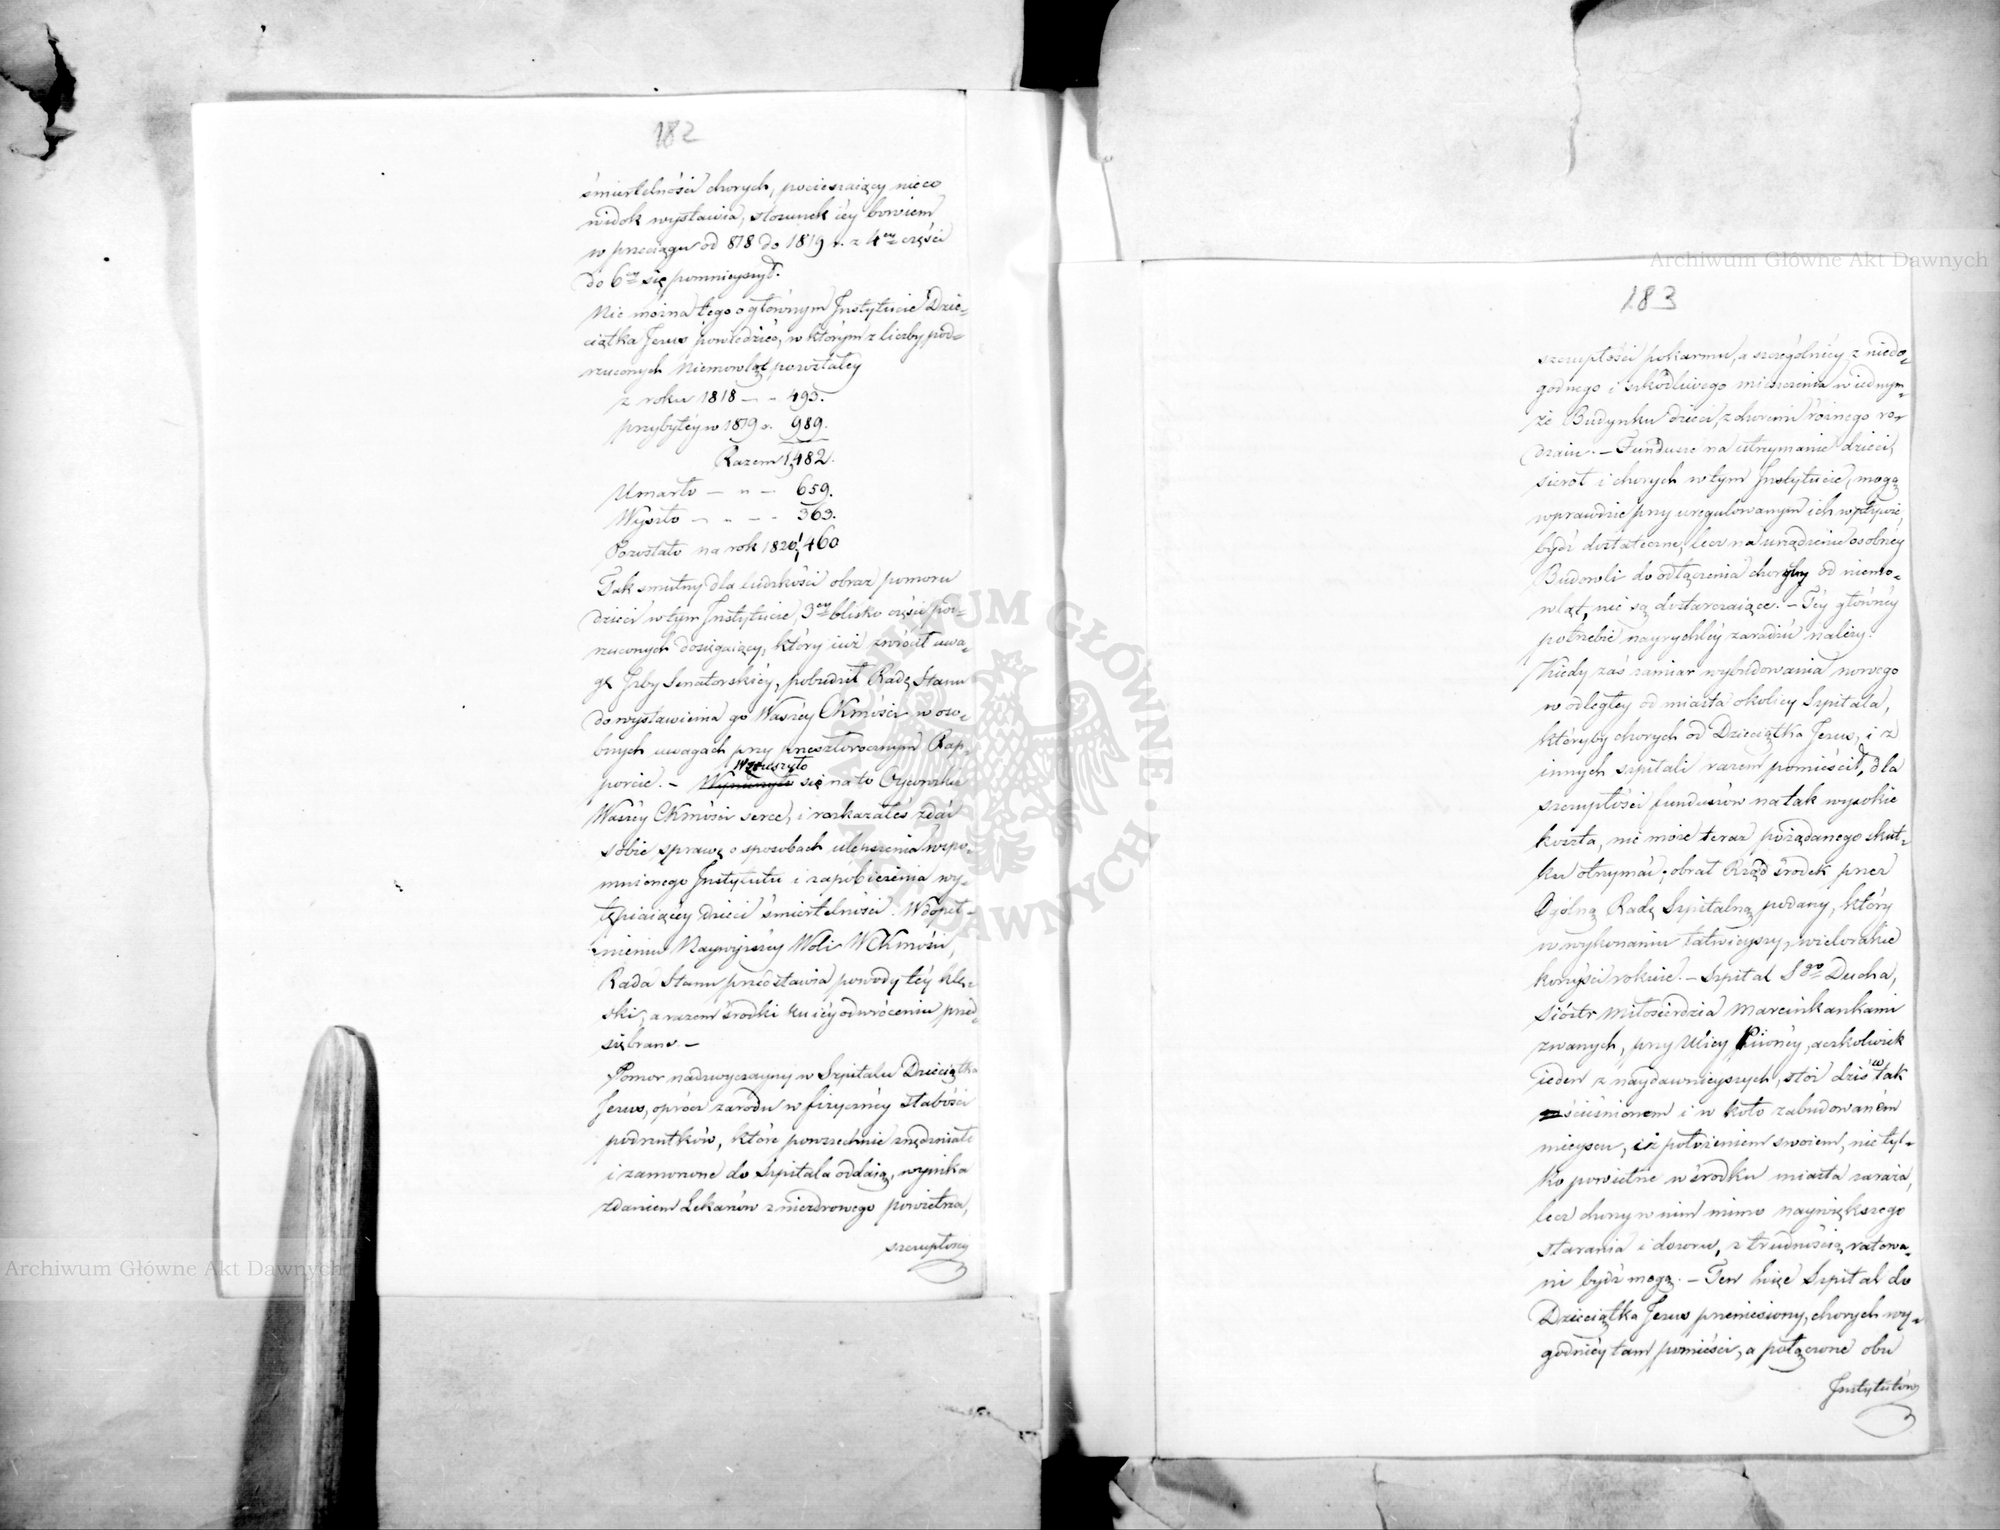 182
śmiertelności chorych, pocieszaiący nieco
widok wystawia, stosunek iéy bowiem
w przeciągu od 818 do 1819 r. z 4éy części
do 6éy się pomnieyszył.
Nie można tego o głównym Instytucie Dzie-
ciątka Jezus powiedzieć, w którym z liczby pod-
rzuconych Niemowląt pozostałey
z roku 1818 — „ 493.
przybyłéy w 1819 r. 989.
Razem 1,482.
Umarło — „ — 659.
Wyszło — „ — — 363.
Pozostało na rok 1820, 460
Tak smutny dla ludzkości obraz pomoru
dzieci w tym Instytucie, 3éy blisko części pod-
rzuconych dosięgaiący, który iuż zwrócił uwa-
gę Izby Senatorskiéy, pobudził Radę Stanu
do wystawienia go Waszéy CKMości w oso-
bnych uwagach przy przeszłorocznym Rap-
porcie. — Wzruszyło się na to Oycowskie
Waszéy CKMości serce, i rozkazałeś zdać
sobie sprawę o sposobach ulepszenia wspo-
mnionego Instytutu i zapobieżenia wy-
tępiaiącéy dzieci śmiertelności. W dopeł-
nieniu Naywyższéy Woli WCKMości,
Rada Stanu przedstawia powody téy klę-
ski, a razem środki ku iéy odwróceniu przed-
sięwzięte. —
Pomor nadzwyczayny w Szpitalu Dzieciątka
Jezus, oprócz zarodu w fizycznéy słabości
podrzutków, które powszechnie znędzniałe
i zamorzone do Szpitala oddaią, wynika
zdaniem Lekarzów z niezdrowego powietrza,
szczupłości
Archiwum Główne Akt Dawnych
183
szczupłości pokarmu, a szczególniéy z niedo-
godnego i szkodliwego mieszczenia w iednym-
że Budynku dzieci, z choremi różnego ro-
dzaiu. — Fundusze na utrzymanie dzieci,
sierot i chorych w tym Instytucie, mogą
wprawdzie przy uregulowanym ich wpływie
bydź dostateczne, lecz na urządzenie osobnéy
Budowli do odłączenia chorych od niemo-
wląt, nie są dostarczaiące. — Téy głównéy
potrzebie nayrychléy zaradzić należy.
Kiedy zaś zamiar wybudowania nowego
w odległey od miasta okolicy Szpitala,
któryby chorych od Dzieciątka Jezus, i z
innych szpitali razem pomieścił, dla
szczupłości funduszów na tak wysokie
koszta, nie może teraz pożądanego skut-
ku otrzymać; obrał Rząd środek przez
Ogólną Radę Szpitalną podany, który
w wykonaniu łatwieyszy, wielorakie
korzyści rokuie. — Szpital Sgo Ducha,
Sióstr Miłosierdzia Marcinkankami
zwanych, przy Ulicy Piwnéy, aczkolwiek
ieden z naydawnieyszych, stoi dziś w tak
ściśnionem i w koło zabudowaném
mieyscu, iż położeniem swoiem, nie tyl-
ko powietrze w środku miasta zaraża,
lecz chorzy w nim mimo naywiększego
starania i dozoru, z trudnością ratowa-
ni bydź mogą. — Ten więc Szpital do
Dzieciątka Jezus przeniesiony, chorych wy-
godniéy tam pomieści, a połączone obu
Instytutów
Archiwum Główne Akt Dawnych
ARCHIWUM GŁÓWNE AKT DAWNYCH